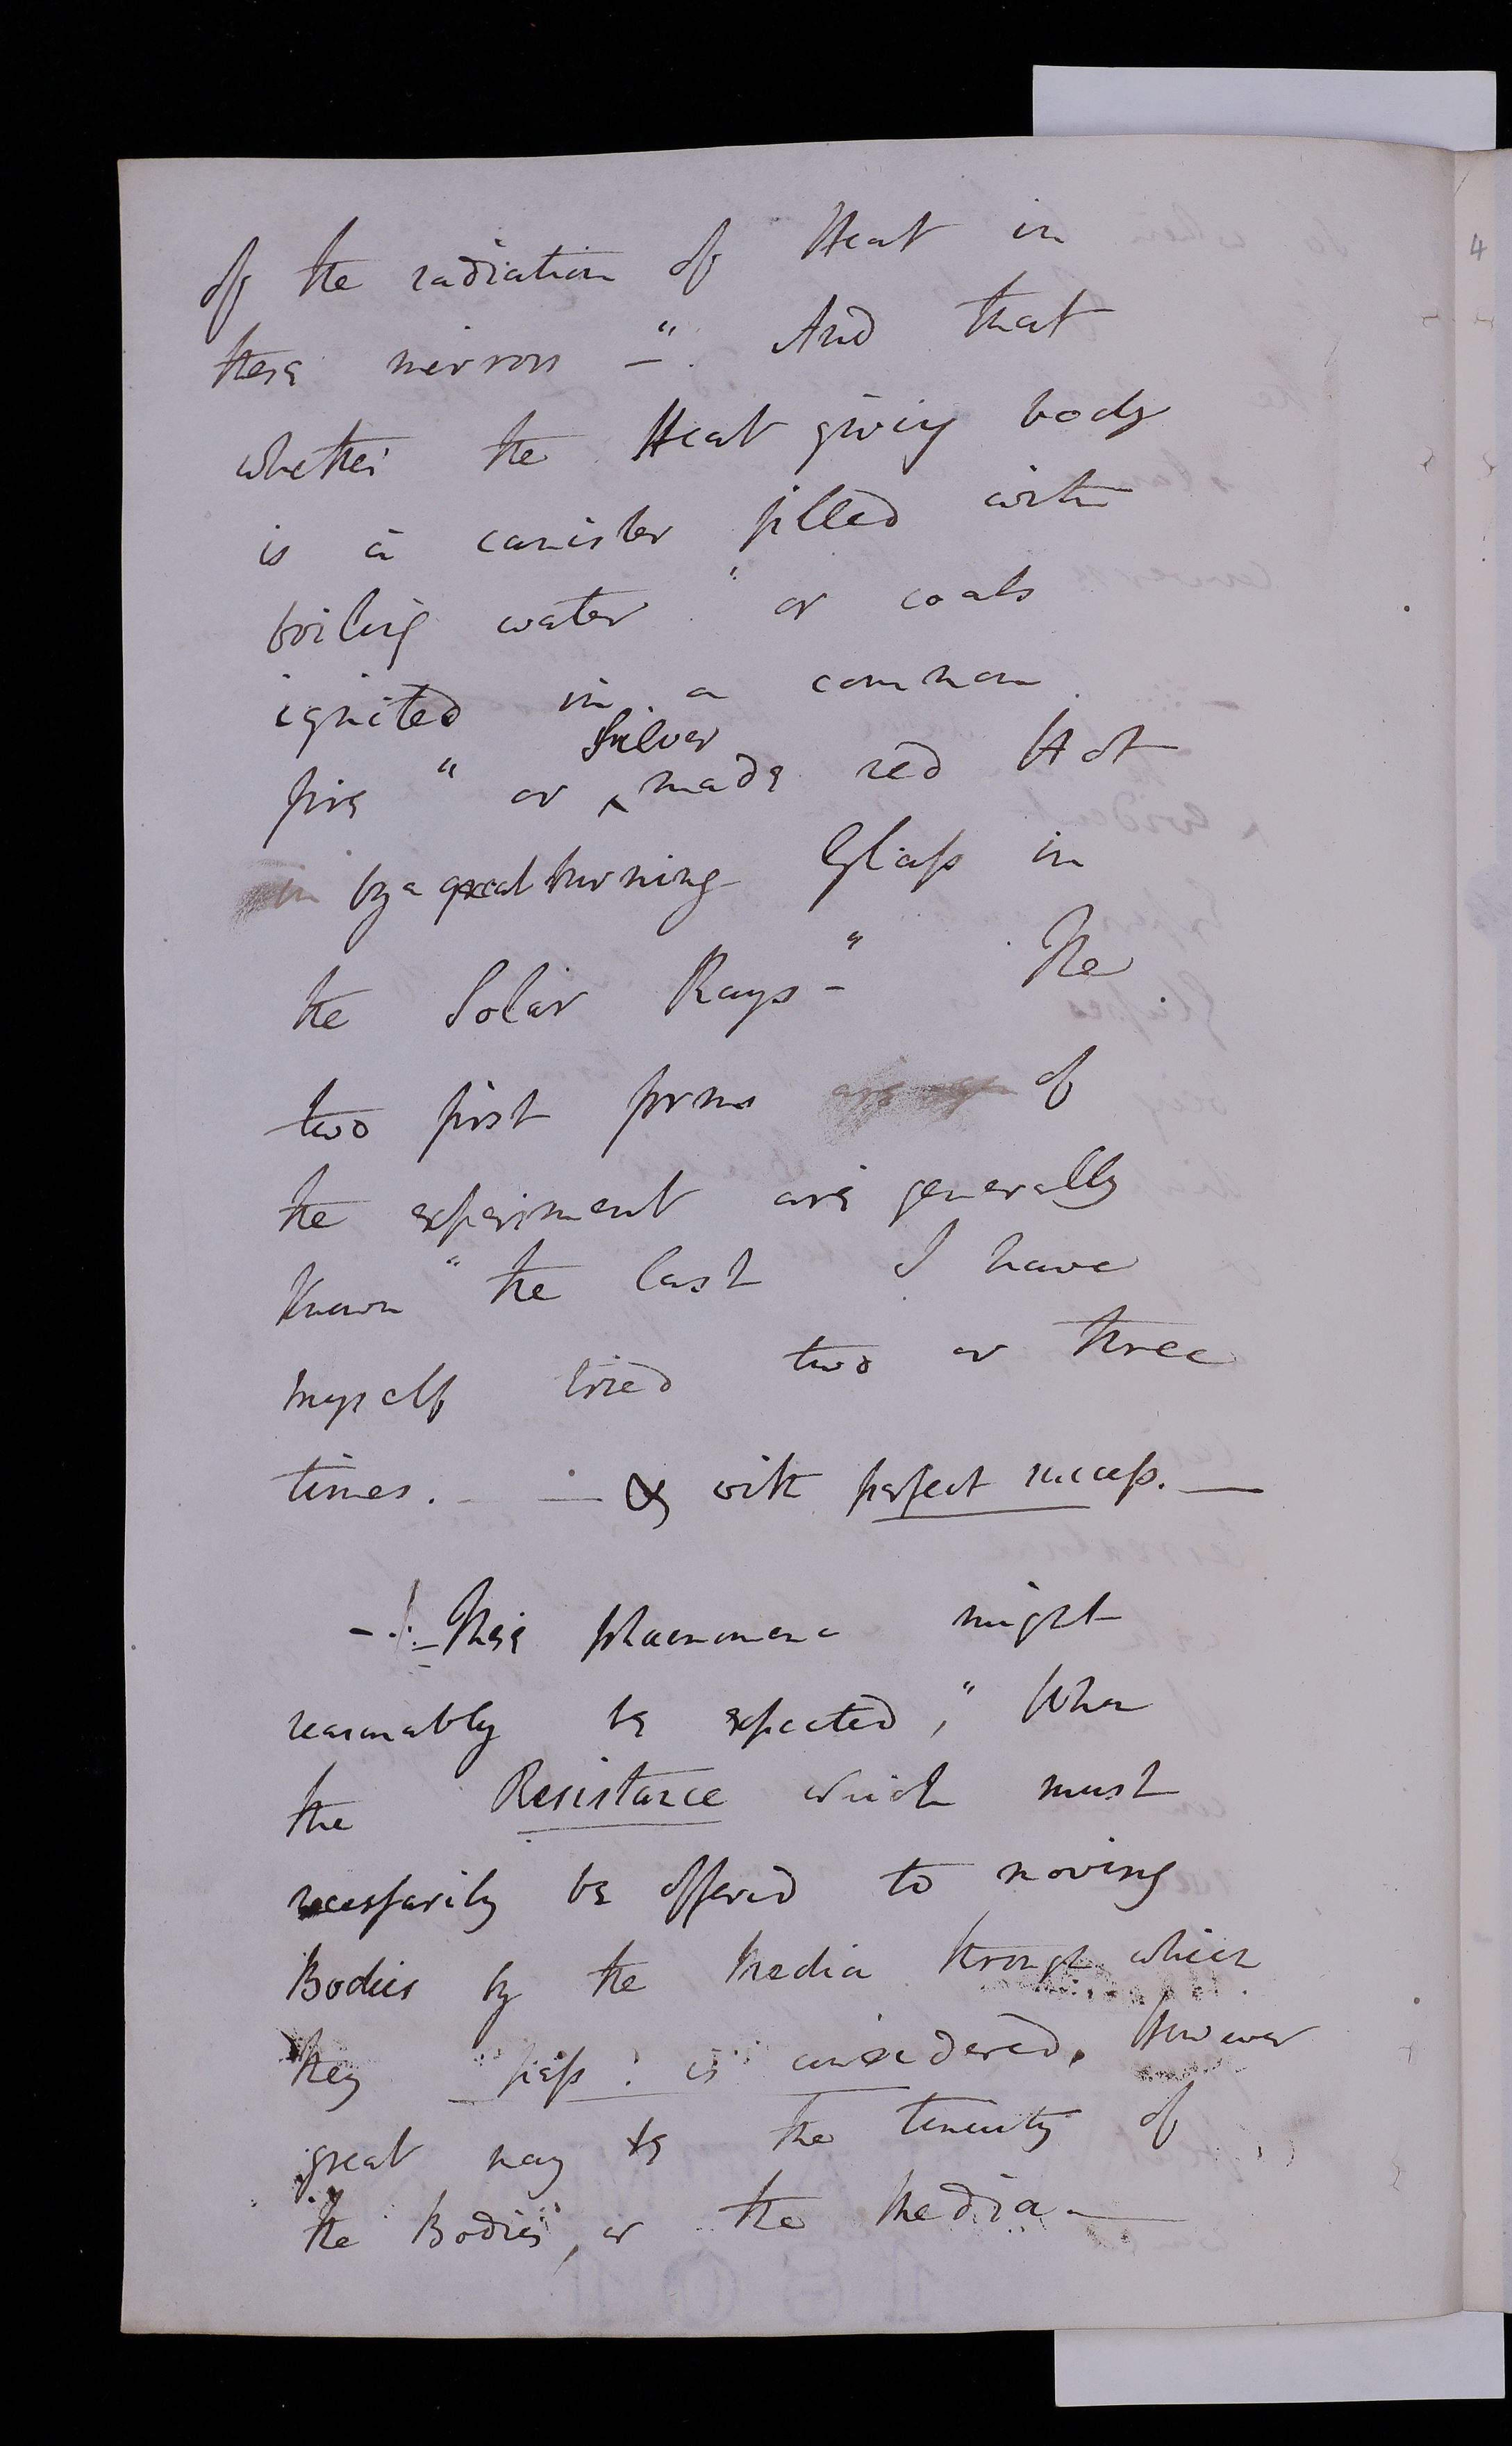 of the radiation of Heat in
these mirrors –". And that
whether the Heat giving body
is a canister filled with
boiling water " or coals
ignited in a common
fire " or ^ made red Hot
Silver
in by a great burning Glaſs in
the Solar Rays –" The
two first forms of
the experiment are generally
known " the last I have
myself tried two or three
times. – — & with perfect succeſs. —
-.|.- These phaenomena might
reasonably be expected, " When
the Resistance which must
neceſsarily be offered to moving
Bodies by the Media through which
they paſs: is considered. However
great may be the tenuity of
the Bodies, or the Media —
4